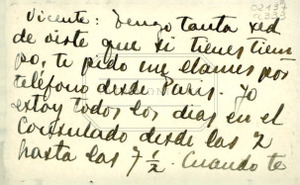 Vicente: Tengo tanta sed
de verte que si tienes tiem
po, te pido me llames por
teléfono desde Paris. Yo
estoy todos los dias en el
Consulado desde las 2
hasta las 7 ½. Cuando te